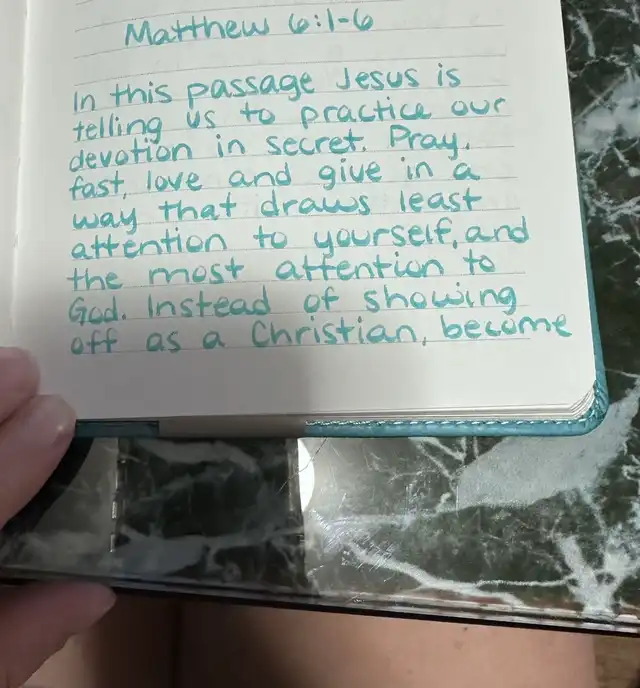 Matthew 6:1-6
In this passage Jesus is
telling us to practice our
devotion in secret. Pray,
fast, love and give in a
way that draws least
attention to yourself, and
the most attention to
God. Instead of showing
off as a Christian, become